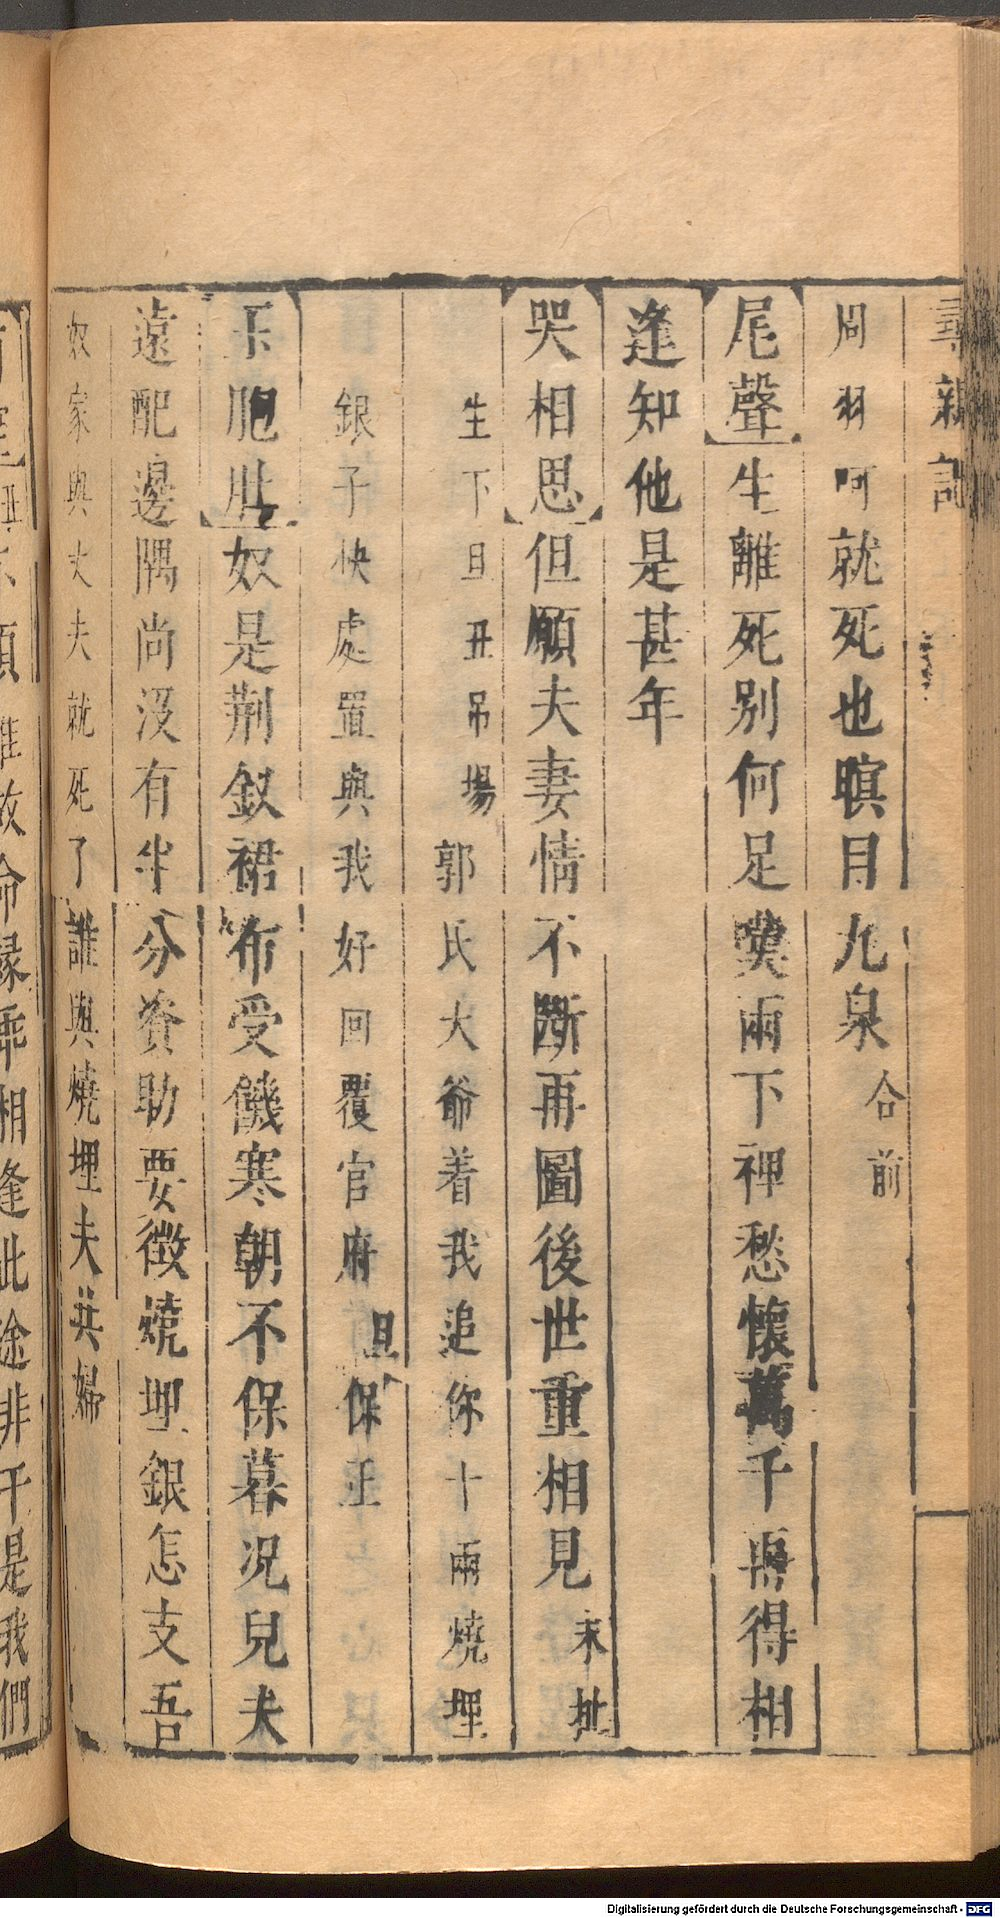 尋親記
周羽呵就死也暝目九泉合前
尾聲生離死別何足嘆兩下裡愁懷萬千再得相
逢知他是甚年
哭相思但願夫妻情不斷再圖後世重相見末扯
生下旦丑吊場郭氏大爺着我追你十兩燒埋
銀子快處置與我好回覆官府旦保正
玉胞肚奴是荆釵裙布受饑寒朝不保暮况兒夫
遠配邊隅尚沒有半分資助要徵燒埋銀怎支吾
奴家與丈夫就死了誰與燒埋夫共婦
誰故命緣乖相逢此途非干是我們
Digitalisierung gefördert durch die Deutsche Forschungsgemeinschaft - DFG